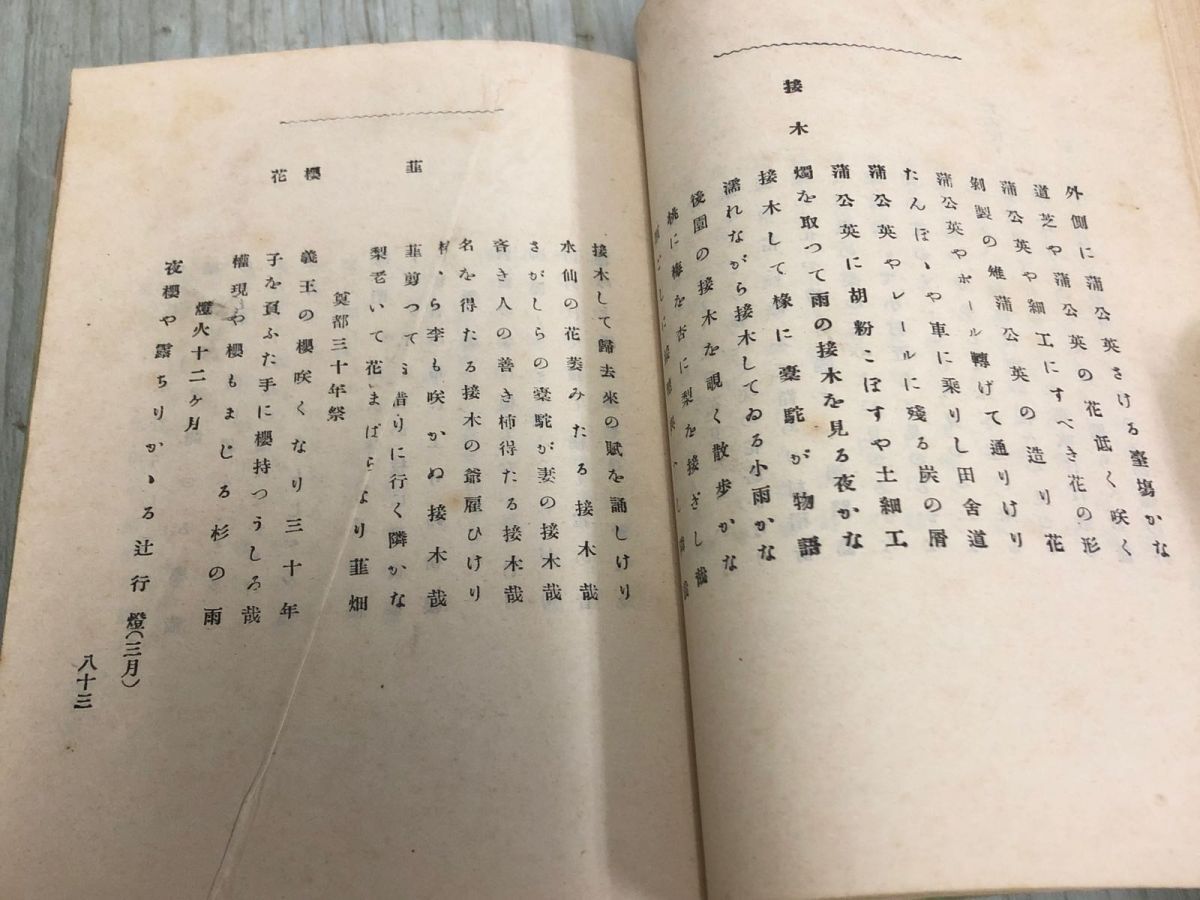 外側に蒲公英さける臺場かな
道芝や蒲公英の花低く咲く
蒲公英や細工にすべき花の形
剝製の雉蒲公英の造り花
蒲公英やボール轉げて通りけり
たんぽゝや車に乘りし田舍道
蒲公英やレールに殘る炭の屑
蒲公英に胡粉こぼすや土細工
接木
燭を取つて雨の接木を見る夜かな
接木して椽に槖駝が物語
濡れながら接木してゐる小雨かな
後園の接木を覗く散歩かな
桃に梅を杏に梨を接ぎし
接木して歸去來の賦を誦しけり
水仙の花萎みたる接木哉
さがしらの槖駝が妻の接木哉
吝き人の善き柿得たる接木哉
名を得たる接木の爺雇ひけり
ら李も咲かぬ接木哉
韮
韮剪つて借りに行く隣かな
梨老いて花まばらなり韮畑
櫻花
奠都三十年祭
義王の櫻咲くなり三十年
子を負ふた手に櫻持つうしろ哉
權現や櫻もまじる杉の雨
燈火十二ヶ月
夜櫻や露ちりかゝる辻行燈(三月)
八十三